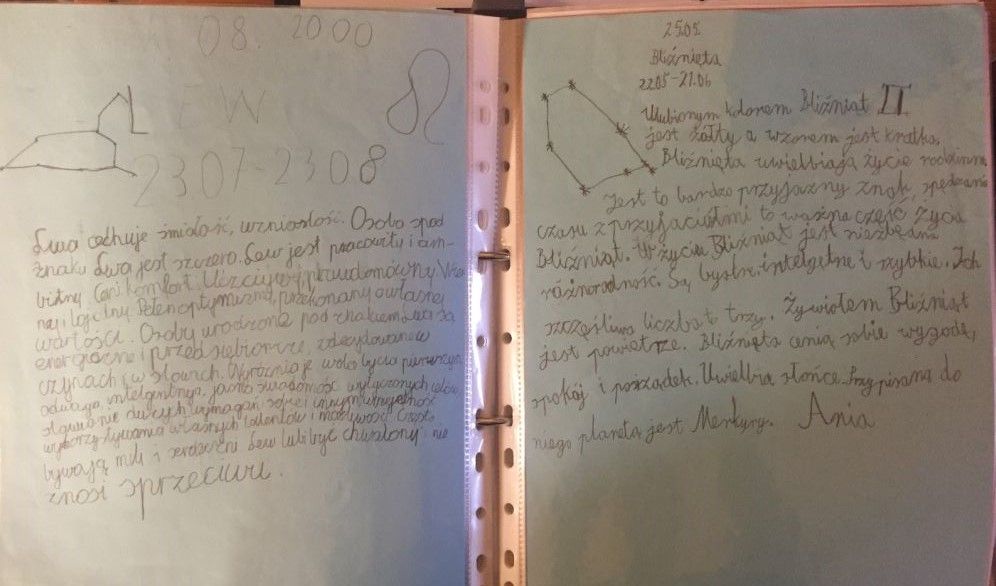 08. 2000
EW
23.07-23.08
Lwa cechuje śmiałość, wzniosłość. Osoba spod
znaku Lwa jest szczera. Lew jest pracowity i am-
bitny. Ceni komfort. Uczciwy, prawdomówny
i lojalny. Pełen optymizmu, przekonany o własnej
wartości. Osoby urodzone pod znakiem Lwa są
energiczne i przedsiębiorcze, zdecydowane w
czynach i w słowach. Wyróżnia je wola bycia pierwszym,
odwaga, inteligencja, jasna świadomość wytyczonych celów,
stawianie dużych wymagań sobie i innym, umiejętność
wykorzystywania własnych talentów i możliwości. Często
bywają mili i serdeczni. Lew lubi być chwalony i nie
znosi sprzeciwu.
25.05.
Bliźnięta
22.05-21.06
Ulubionym kolorem Bliźniąt II
jest żółty a wzorem jest kratka.
Bliźnięta uwielbiają życie rodzinne
Jest to bardzo przyjazny znak, spędzanie
czasu z przyjaciółmi to ważna część życia
Bliźniąt. W życiu Bliźniąt jest niezbędna
różnorodność. Są bystre, inteligętne i szybkie. Ich
szczęśliwa liczba to trzy. Żywiołem Bliźniąt
jest powietrze. Bliźnięta cenią sobie wygodę,
spokój i porządek. Uwielbia słońce. Przypisaną do
niego planetą jest Merkury. Ania